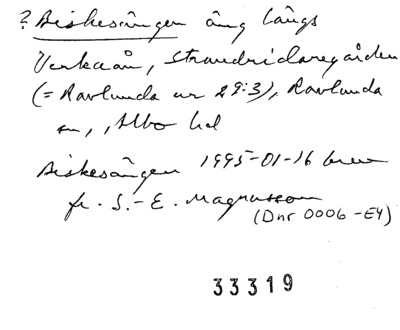 ? Biskesången äng längs
Verkaån, Strandridaregården
(= Ravlunda nr 29:3), Ravlunda
sn, Albo hd
Biskesången 1995-01-16 brev
fr. S.-E. Magnusson
(Dnr 0006-E4)
33319